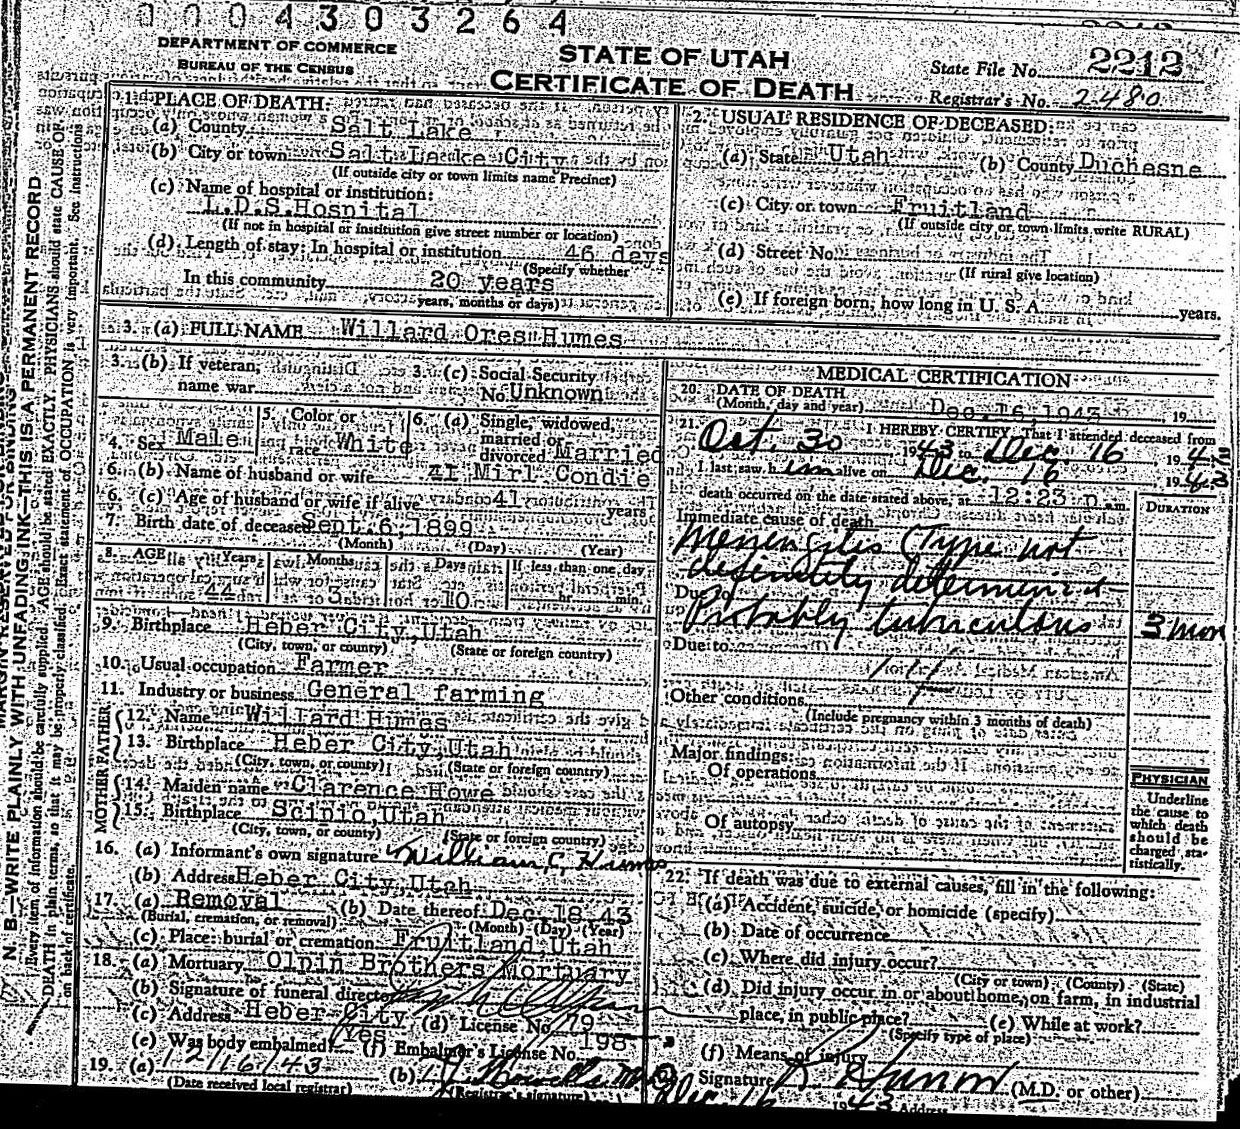 0004303264
DEPARTMENT OF COMMERCE
BUREAU OF THE CENSUS
STATE OF UTAH
CERTIFICATE OF DEATH
State File No. 2212
Registrar's No. 2480
N. B.—WRITE PLAINLY WITH UNFADING INK—THIS IS A PERMANENT RECORD
Every item of information should be carefully supplied. AGE should be stated EXACTLY. PHYSICIANS should state CAUSE OF
DEATH in plain terms, so that it may be properly classified. Exact statement of OCCUPATION is very important. See instructions
on back of certificate.
1. PLACE OF DEATH:
(a) County Salt Lake
(b) City or town Salt Lake City
(If outside city or town limits name Precinct)
(c) Name of hospital or institution:
L.D.S. Hospital
(If not in hospital or institution give street number or location)
(d) Length of stay: In hospital or institution 46 days
(Specify whether
In this community 20 years
years, months or days)
2. USUAL RESIDENCE OF DECEASED:
(a) State Utah (b) County Duchesne
(c) City or town Fruitland
(If outside city or town limits write RURAL)
(d) Street No.
(If rural give location)
(e) If foreign born, how long in U. S. A. years.
3. (a) FULL NAME Willard Ores Humes
3. (b) If veteran, name war
3. (c) Social Security No. Unknown
4. Sex Male
5. Color or race White
6. (a) Single, widowed, married or divorced Married
6. (b) Name of husband or wife 41 Mirl Condie
6. (c) Age of husband or wife if alive 41 years
7. Birth date of deceased Sept. 6, 1899
(Month) (Day) (Year)
8. AGE Years Months Days If less than one day
44 3 10 hr. min.
9. Birthplace Heber City, Utah
(City, town, or county) (State or foreign country)
10. Usual occupation Farmer
11. Industry or business General farming
FATHER
12. Name Willard Humes
13. Birthplace Heber City, Utah
(City, town, or county) (State or foreign country)
MOTHER
14. Maiden name Clarence Howe
15. Birthplace Scipio, Utah
(City, town, or county) (State or foreign country)
16. (a) Informant's own signature William C. Humes
(b) Address Heber City, Utah
17. (a) Removal (b) Date thereof Dec. 18, 43
(Burial, cremation, or removal) (Month) (Day) (Year)
(c) Place: burial or cremation Fruitland, Utah
18. (a) Mortuary Olpin Brothers Mortuary
(b) Signature of funeral director
(c) Address Heber City (d) License No. 79
(e) Was body embalmed? Yes (f) Embalmer's License No. 198
19. (a) 12/16/43 (b)
(Date received local registrar) (Registrar's signature)
MEDICAL CERTIFICATION
20. DATE OF DEATH
(Month, day and year) Dec. 16, 1943, 19
21. I HEREBY CERTIFY, That I attended deceased from
Oct. 30 1943 to Dec 16, 194
I last saw him alive on Dec. 16, 194
death occurred on the date stated above, at 12:23 p. m.
DURATION
Immediate cause of death
Meningitis (Type not
definitely determined
Due to
Probably tuberculous 3 mon
Due to
Other conditions
(Include pregnancy within 3 months of death)
Major findings:
Of operations
Of autopsy
PHYSICIAN
Underline
the cause to
which death
should be
charged sta-
tistically.
22. If death was due to external causes, fill in the following:
(a) Accident, suicide, or homicide (specify)
(b) Date of occurrence
(c) Where did injury occur?
(City or town) (County) (State)
(d) Did injury occur in or about home, on farm, in industrial
place, in public place? (e) While at work?
(Specify type of place)
(f) Means of injury
Signature (M.D. or other)
Dec 16 1943 Address